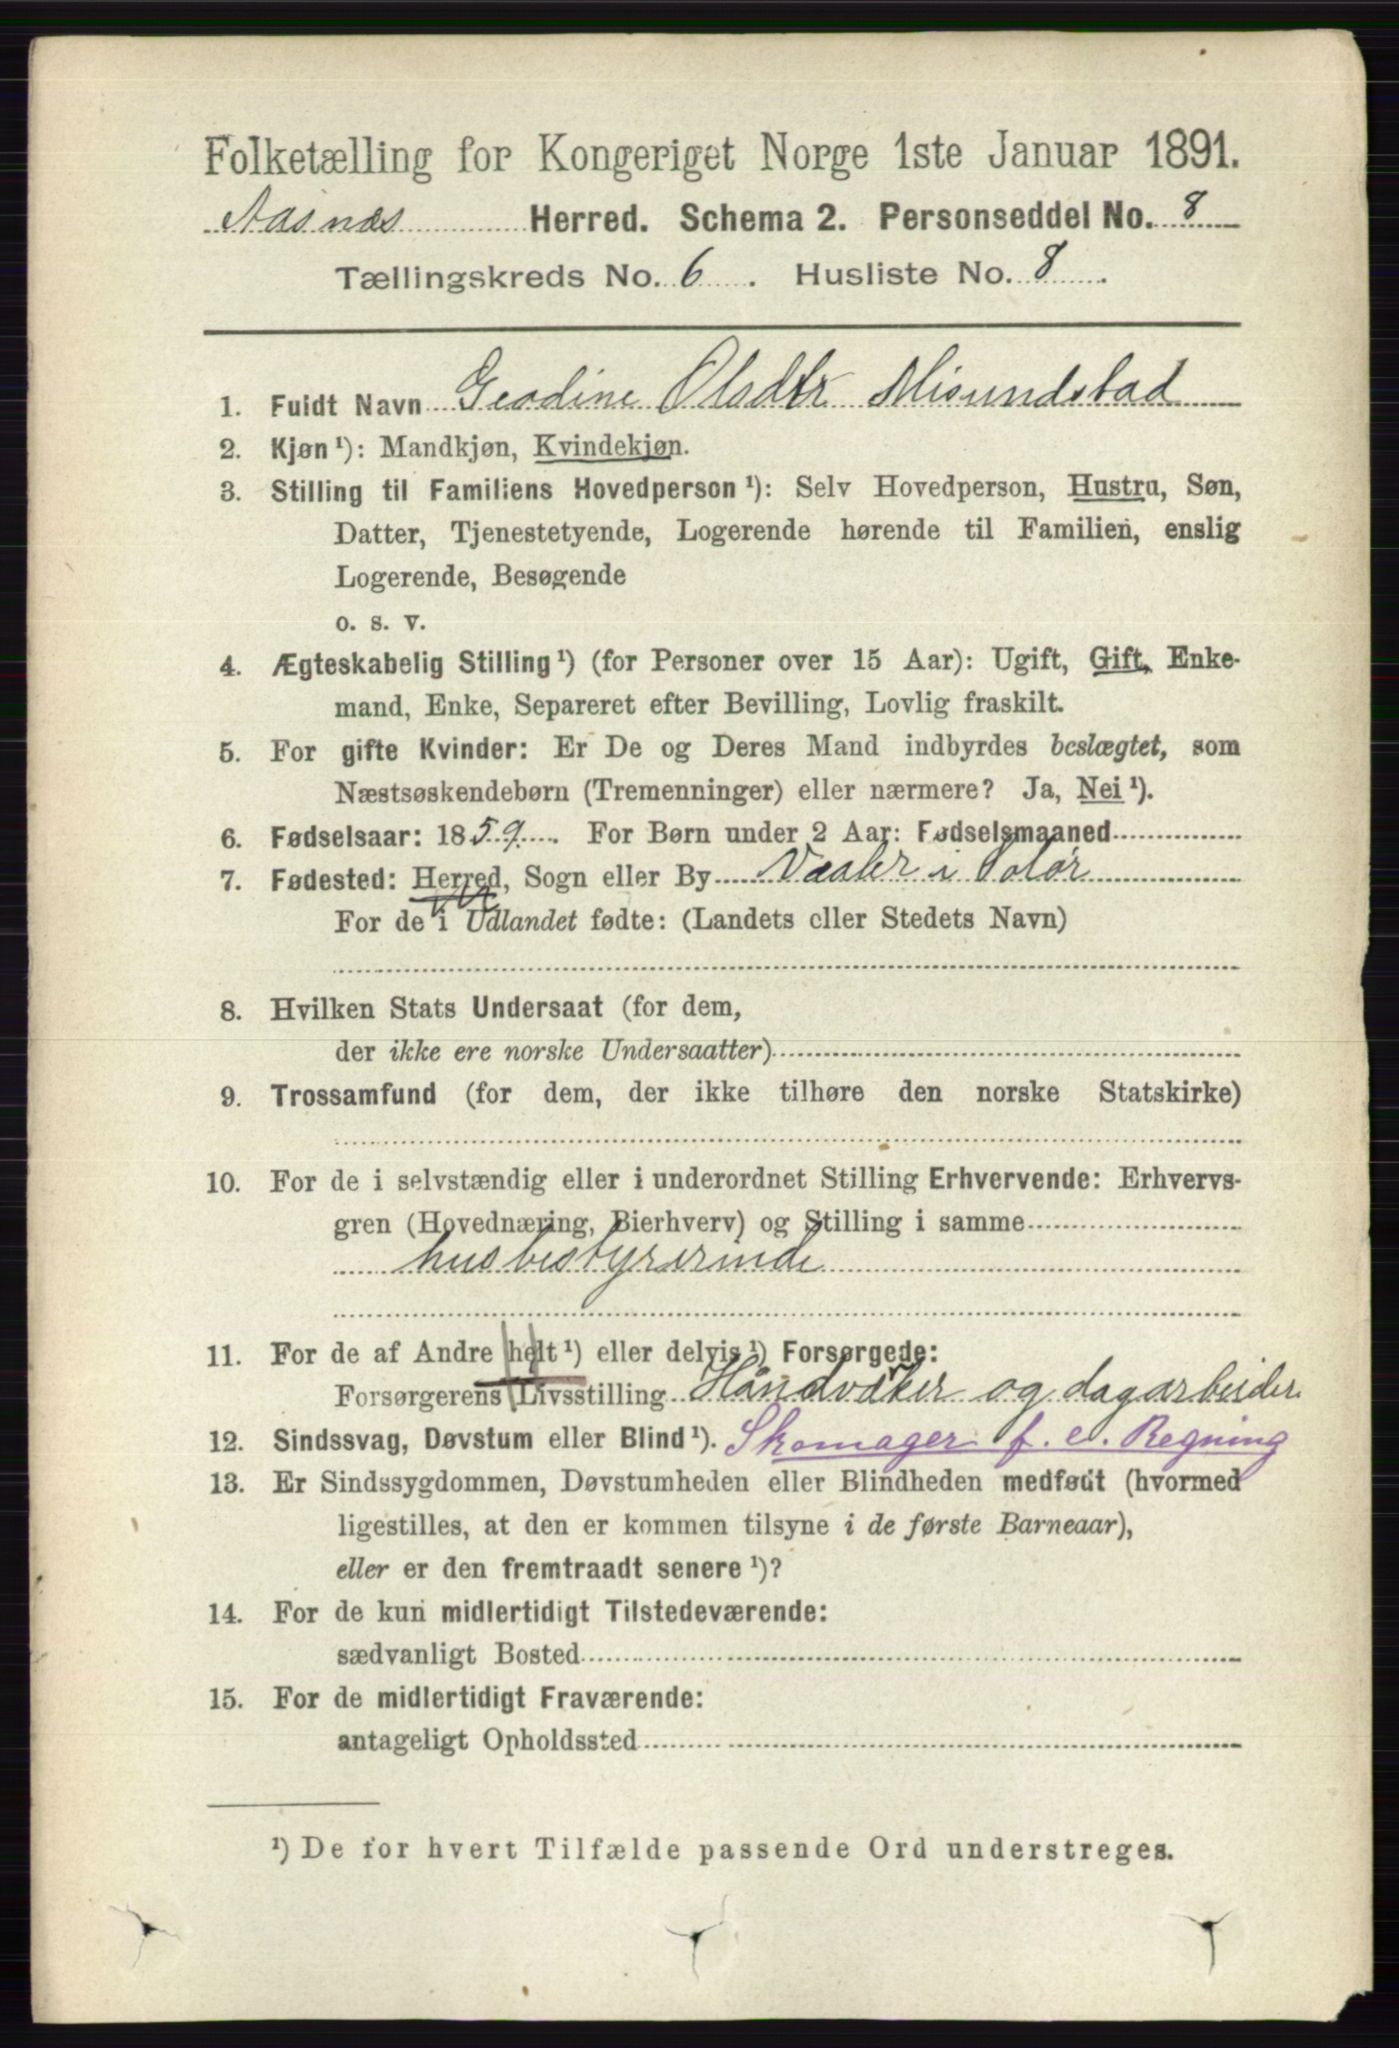 Folketælling for Kongeriget Norge 1ste Januar 1891.
Aasnæs Herred. Schema 2. Personseddel No. 8
Tællingskreds No. 6. Husliste No. 8.
1. Fuldt Navn Geadine Olsdtr Misundstad
2. Kjøn ¹): Mandkjøn, Kvindekjøn.
3. Stilling til Familiens Hovedperson ¹): Selv Hovedperson, Hustru, Søn,
Datter, Tjenestetyende, Logerende hørende til Familien, enslig
Logerende, Besøgende
o. s. v.
4. Ægteskabelig Stilling ¹) (for Personer over 15 Aar): Ugift, Gift, Enke-
mand, Enke, Separeret efter Bevilling, Lovlig fraskilt.
5. For gifte Kvinder: Er De og Deres Mand indbyrdes beslægtet, som
Næstsøskendebørn (Tremenninger) eller nærmere? Ja, Nei ¹).
6. Fødselsaar: 1859. For Børn under 2 Aar: Fødselsmaaned
7. Fødested: Herred, Sogn eller By Vaaler i Solør
For de i Udlandet fødte: (Landets eller Stedets Navn)
8. Hvilken Stats Undersaat (for dem,
der ikke ere norske Undersaatter)
9. Trossamfund (for dem, der ikke tilhøre den norske Statskirke)
10. For de i selvstændig eller i underordnet Stilling Erhvervende: Erhvervs-
gren (Hovednæring, Bierhverv) og Stilling i samme
husbestyrerinde
11. For de af Andre helt ¹) eller delvis ¹) Forsørgede:
Forsørgerens Livsstilling Håndværker og dagarbeider
12. Sindssvag, Døvstum eller Blind ¹). Skomager f. e. Regning
13. Er Sindssygdommen, Døvstumheden eller Blindheden medfødt (hvormed
ligestilles, at den er kommen tilsyne i de første Barneaar),
eller er den fremtraadt senere ¹)?
14. For de kun midlertidigt Tilstedeværende:
sædvanligt Bosted
15. For de midlertidigt Fraværende:
antageligt Opholdssted
¹) De for hvert Tilfælde passende Ord understreges.